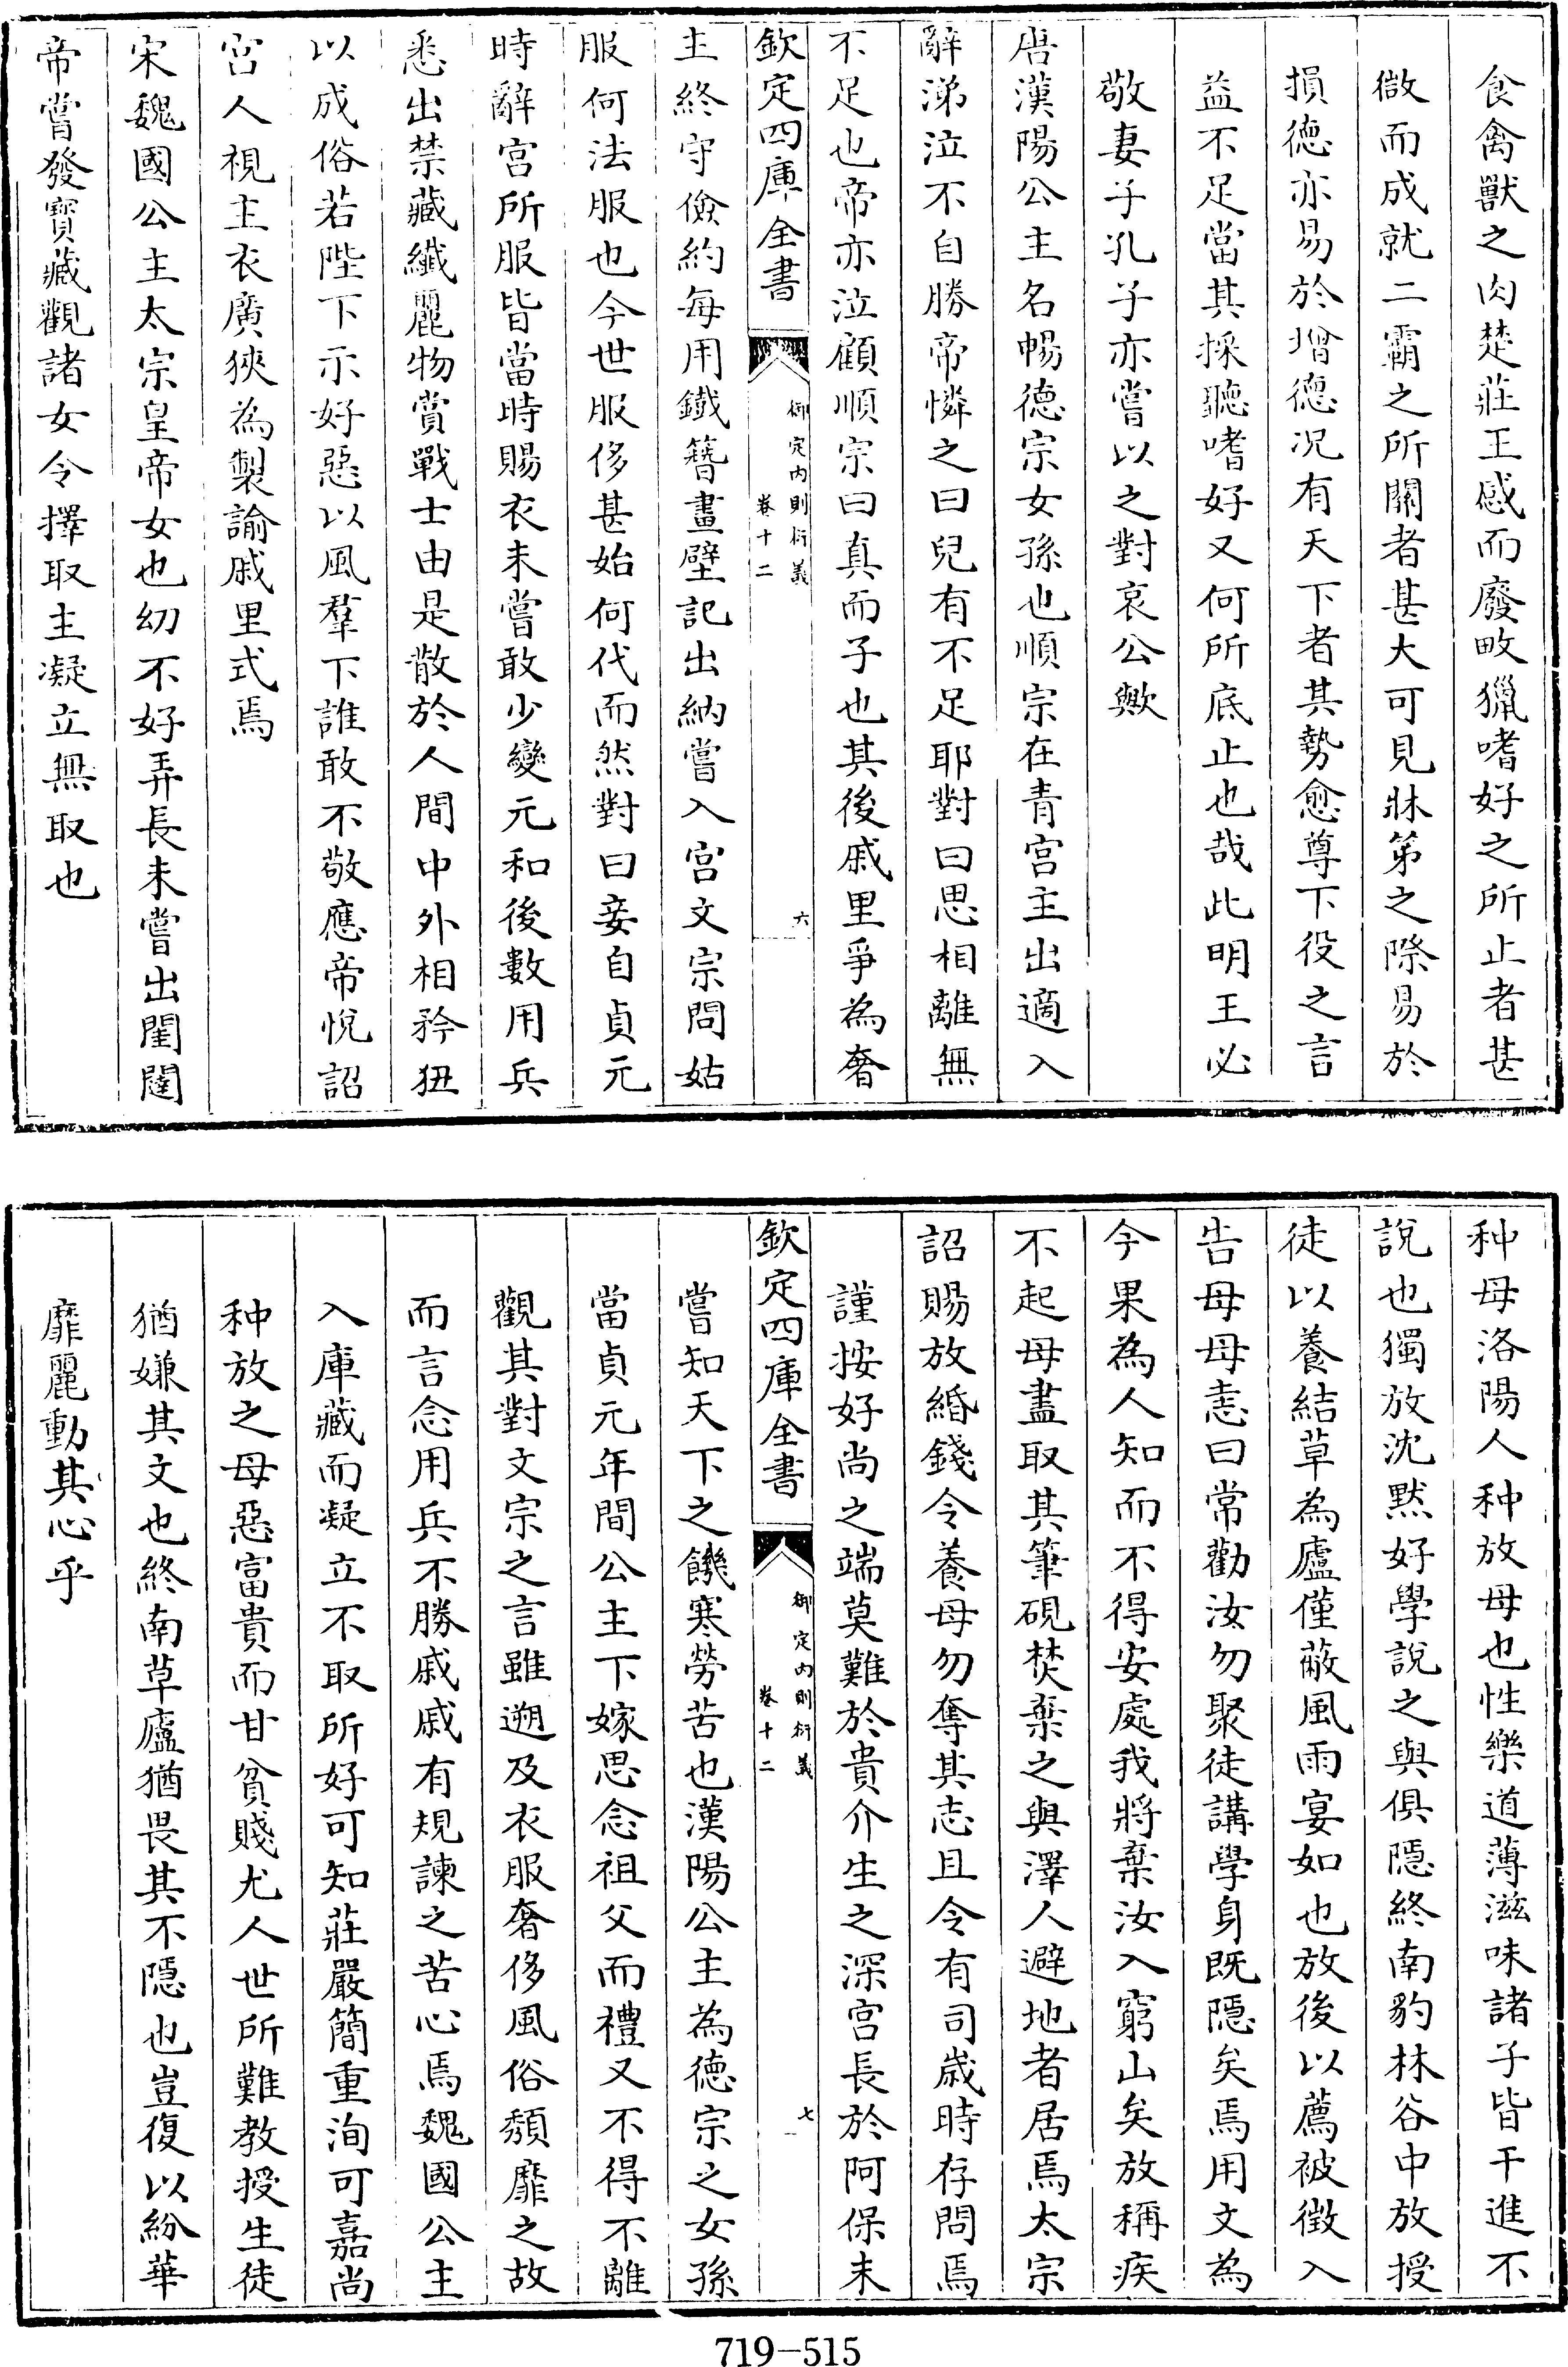 食禽獸之肉楚莊王感而廢畋獵嗜好之所止者甚
微而成就二霸之所關者甚大可見牀笫之際易於
損德亦易於增德况有天下者其勢愈尊下役之言
益不足當其採聽嗜好又何所底止也哉此明王必
敬妻子孔子亦嘗以之對哀公歟
唐漢陽公主名暢德宗女孫也順宗在青宫主出適入
辭涕泣不自勝帝憐之曰兒有不足耶對曰思相離無
不足也帝亦泣顧順宗曰真而子也其後戚里爭為奢
欽定四庫全書
御定内則衍義
卷十二
六
主終守儉約每用鐵簪畫壁記出納嘗入宫文宗問姑
服何法服也今世服侈甚始何代而然對曰妾自貞元
時辭宫所服皆當時賜衣未嘗敢少變元和後數用兵
悉出禁藏纎麗物賞戰士由是散於人間中外相矜狃
以成俗若陛下示好惡以風羣下誰敢不敬應帝悅詔
宫人視主衣廣狹為製諭戚里式焉
宋魏國公主太宗皇帝女也幼不好弄長未嘗出閨闥
帝嘗發寳藏觀諸女令擇取主凝立無取也
种母洛陽人种放母也性樂道薄滋味諸子皆干進不
說也獨放沈黙好學說之與俱隱終南豹林谷中放授
徒以養結草為廬僅蔽風雨宴如也放後以薦被徴入
告母母恚曰常勸汝勿聚徒講學身既隱矣焉用文為
今果為人知而不得安處我將棄汝入窮山矣放稱疾
不起母盡取其筆硯焚棄之與澤人避地者居焉太宗
詔賜放緡錢令養母勿奪其志且令有司歲時存問焉
謹按好尚之端莫難於貴介生之深宫長於阿保未
欽定四庫全書
御定内則衍義
卷十二
七
嘗知天下之饑寒勞苦也漢陽公主為德宗之女孫
當貞元年間公主下嫁思念祖父而禮又不得不離
觀其對文宗之言雖遡及衣服奢侈風俗頽靡之故
而言念用兵不勝戚戚有規諫之苦心焉魏國公主
入庫藏而凝立不取所好可知莊嚴簡重洵可嘉尚
种放之母惡富貴而甘貧賤尤人世所難教授生徒
猶嫌其文也終南草廬猶畏其不隱也豈復以紛華
靡麗動其心乎
719-515